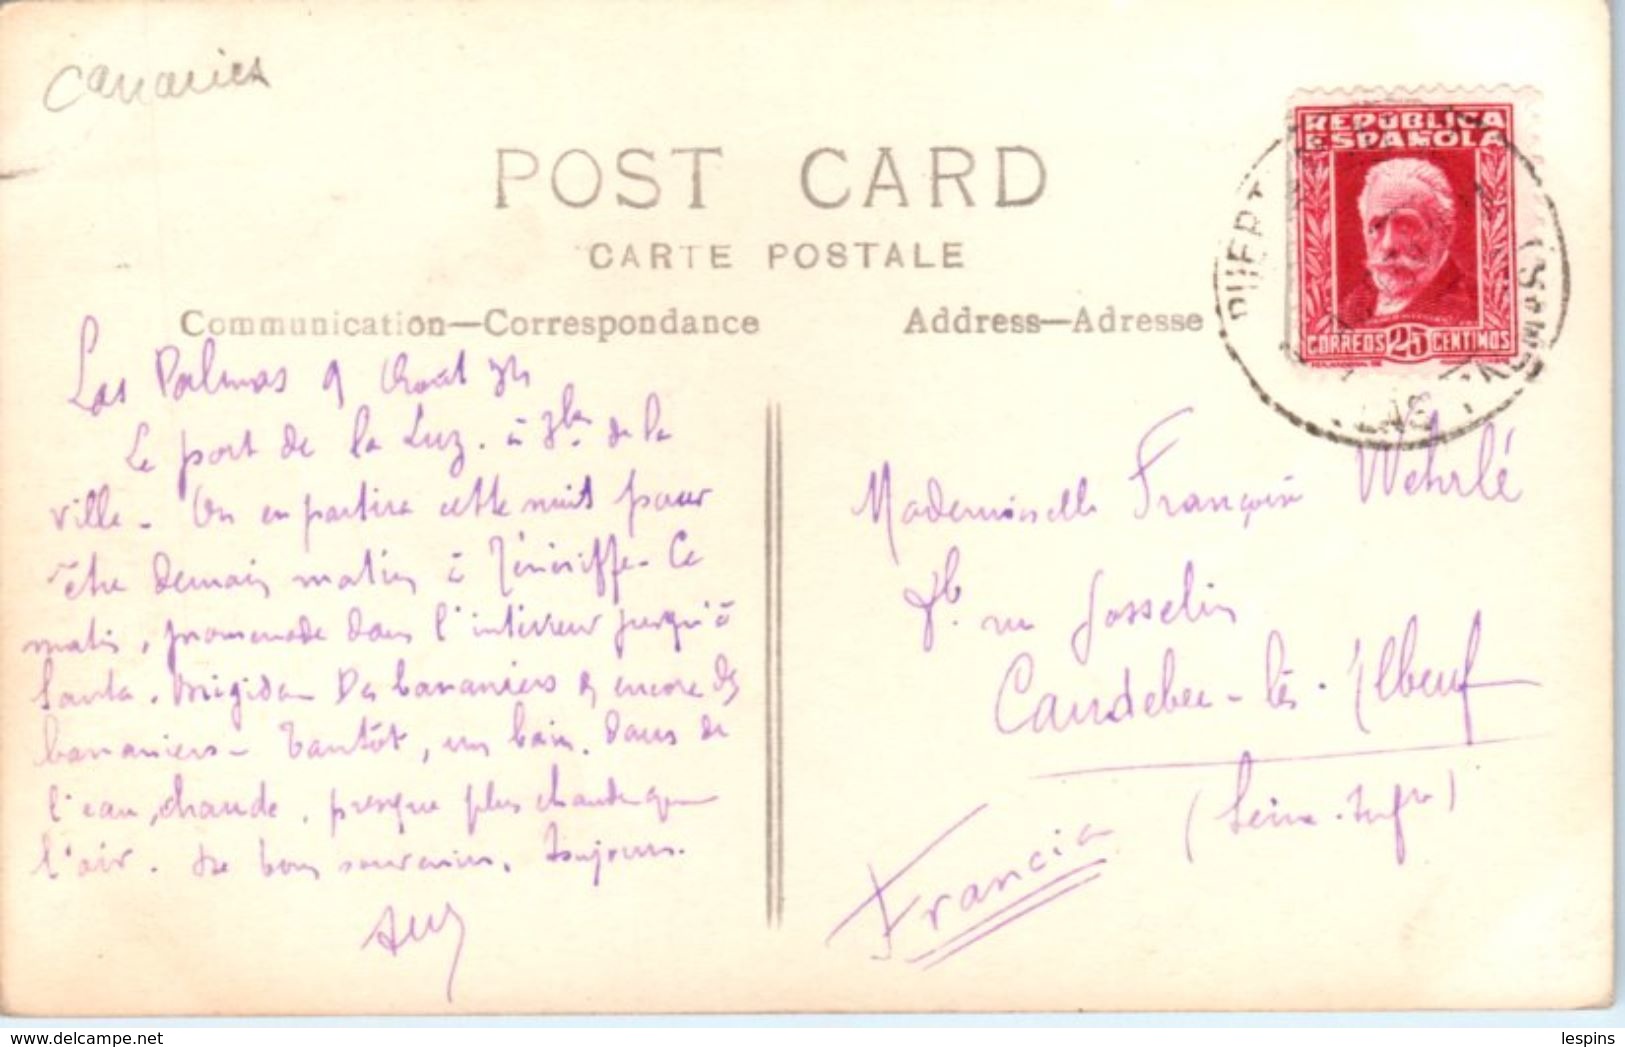 Canaries
REPÚBLICA
ESPAÑOLA
CORREOS 25 CENTIMOS
PUERT
LAS
POST CARD
CARTE POSTALE
Communication—Correspondance
Address—Adresse
Las Palmas 9 Août 34
Le port de la Luz. à 7km de la
ville - On en partira cette nuit pour
être demain matin à Ténériffe - Ce
matin, promenade dans l'intérieur jusqu'à
Santa. Brigida. Des bananiers & encore des
bananiers - Tantôt, un bain. Dans de
l'eau, chaude, presque plus chaude que
l'air. De bons souvenirs. Toujours.
Mademoiselle Françoise Wehrlé
rue Josselin
Caudebec-lès-Elbeuf
(Seine-Infre)
Francia
lespins